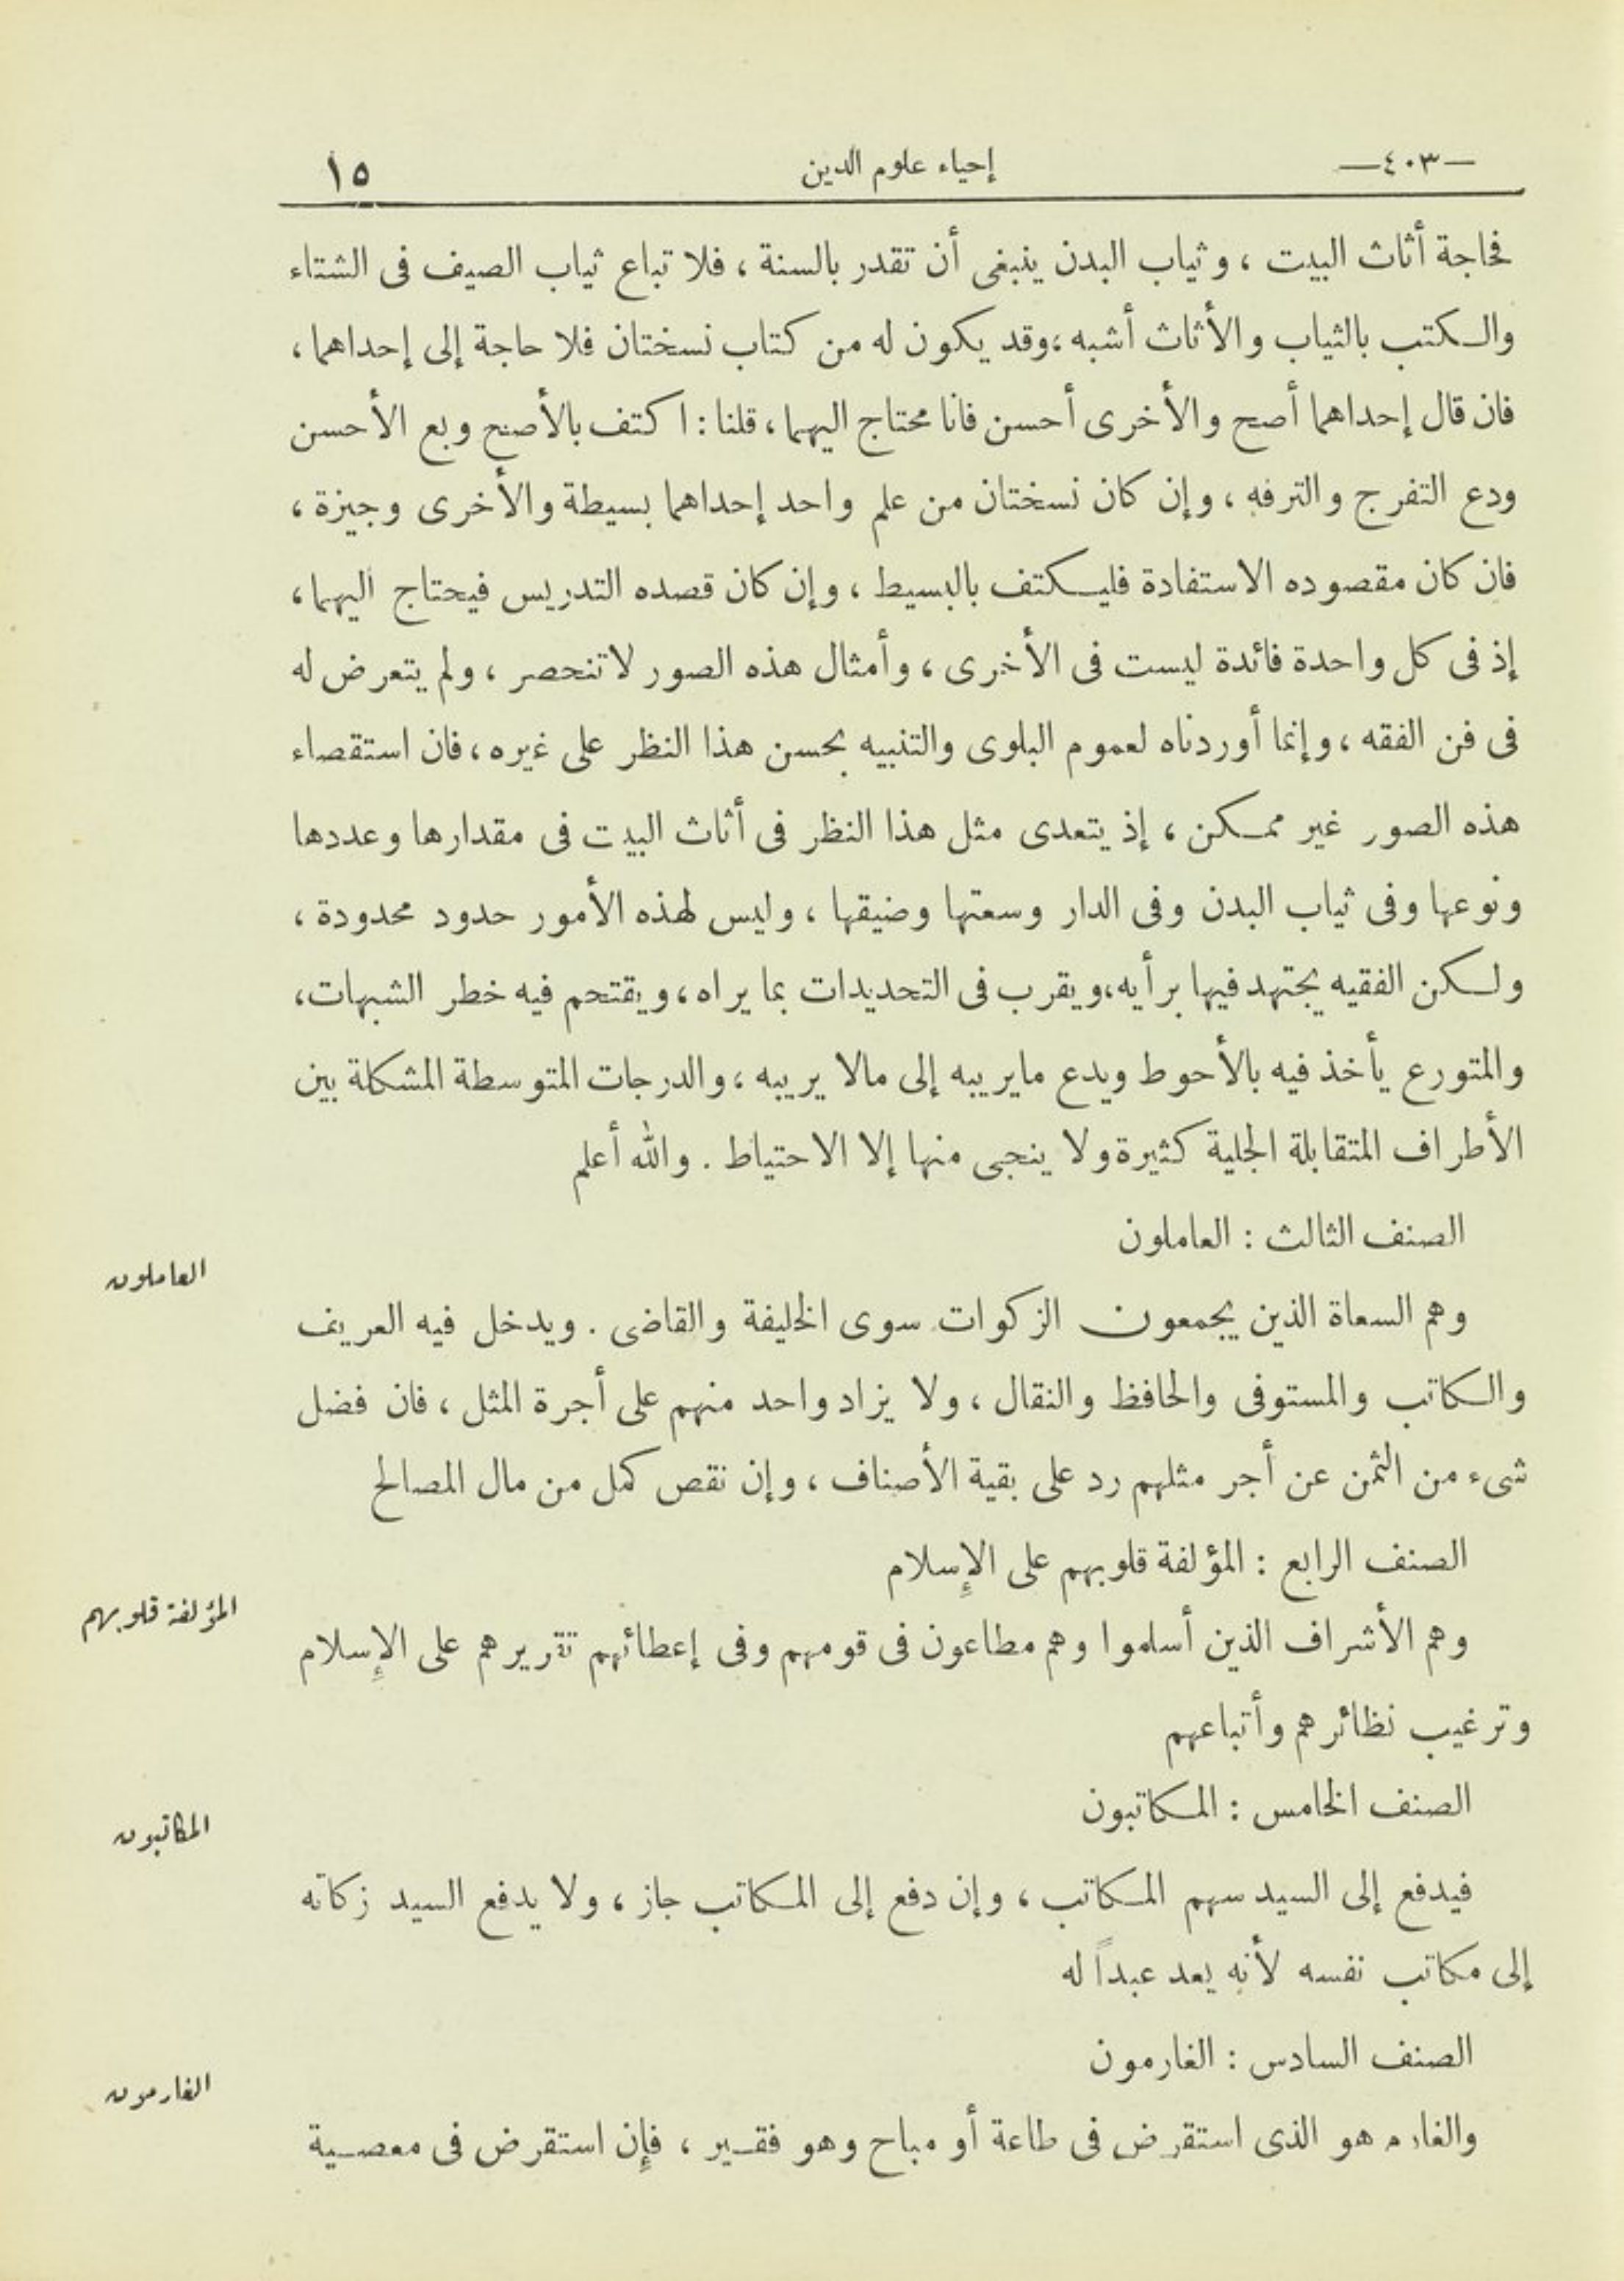 —٤٠٣— إحياء علوم الدين ١٥
فحاجة أثاث البيت ، وثياب البدن ينبغى أن تقدر بالسنة ، فلا تباع ثياب الصيف فى الشتاء
والكتب بالثياب والأثاث أشبه ،وقد يكون له من كتاب نسختان فلا حاجة إلى إحداهما ،
فان قال إحداهما أصح والأخرى أحسن فانا محتاج اليهما ، قلنا : اكتف بالأصح وبع الأحسن
ودع التفرج والترفه ، وإن كان نسختان من علم واحد إحداهما بسيطة والأخرى وجيزة ،
فان كان مقصوده الاستفادة فليكتف بالبسيط ، وإن كان قصده التدريس فيحتاج اليهما ،
إذ فى كل واحدة فائدة ليست فى الأخرى ، وأمثال هذه الصور لاتنحصر ، ولم يتعرض له
فى فن الفقه ، وإنما أوردناه لعموم البلوى والتنبيه بحسن هذا النظر على غيره ، فان استقصاء
هذه الصور غير ممكن ، إذ يتعدى مثل هذا النظر فى أثاث البيت فى مقدارها وعددها
ونوعها وفى ثياب البدن وفى الدار وسعتها وضيقها ، وليس لهذه الأمور حدود محدودة ،
ولكن الفقيه يجتهد فيها برأيه،ويقرب فى التحديدات بما يراه ، ويقتحم فيه خطر الشبهات،
والمتورع يأخذ فيه بالأحوط ويدع مايريبه إلى مالا يريبه ، والدرجات المتوسطة المشكلة بين
الأطراف المتقابلة الجلية كثيرة ولا ينجى منها إلا الاحتياط . والله أعلم
الصنف الثالث : العاملون
العاملون
وهم السعاة الذين يجمعون الزكوات سوى الخليفة والقاضى . ويدخل فيه العريف
والكاتب والمستوفى والحافظ والنقال ، ولا يزاد واحد منهم على أجرة المثل ، فان فضل
شىء من الثمن عن أجر مثلهم رد على بقية الأصناف ، وإن نقص كمل من مال المصالح
الصنف الرابع : المؤلفة قلوبهم على الإسلام
المؤلفة قلوبهم
وهم الأشراف الذين أسلموا وهم مطاعون فى قومهم وفى إعطائهم تقريرهم على الإسلام
وترغيب نظائرهم وأتباعهم
الصنف الخامس : المكاتبون
المكاتبون
فيدفع إلى السيد سهم المكاتب ، وإن دفع إلى المكاتب جاز ، ولا يدفع السيد زكاته
إلى مكاتب نفسه لأنه يعد عبداً له
الصنف السادس : الغارمون
الغارمون
والغارم هو الذى استقرض فى طاعة أو مباح وهو فقير ، فإن استقرض فى معصية